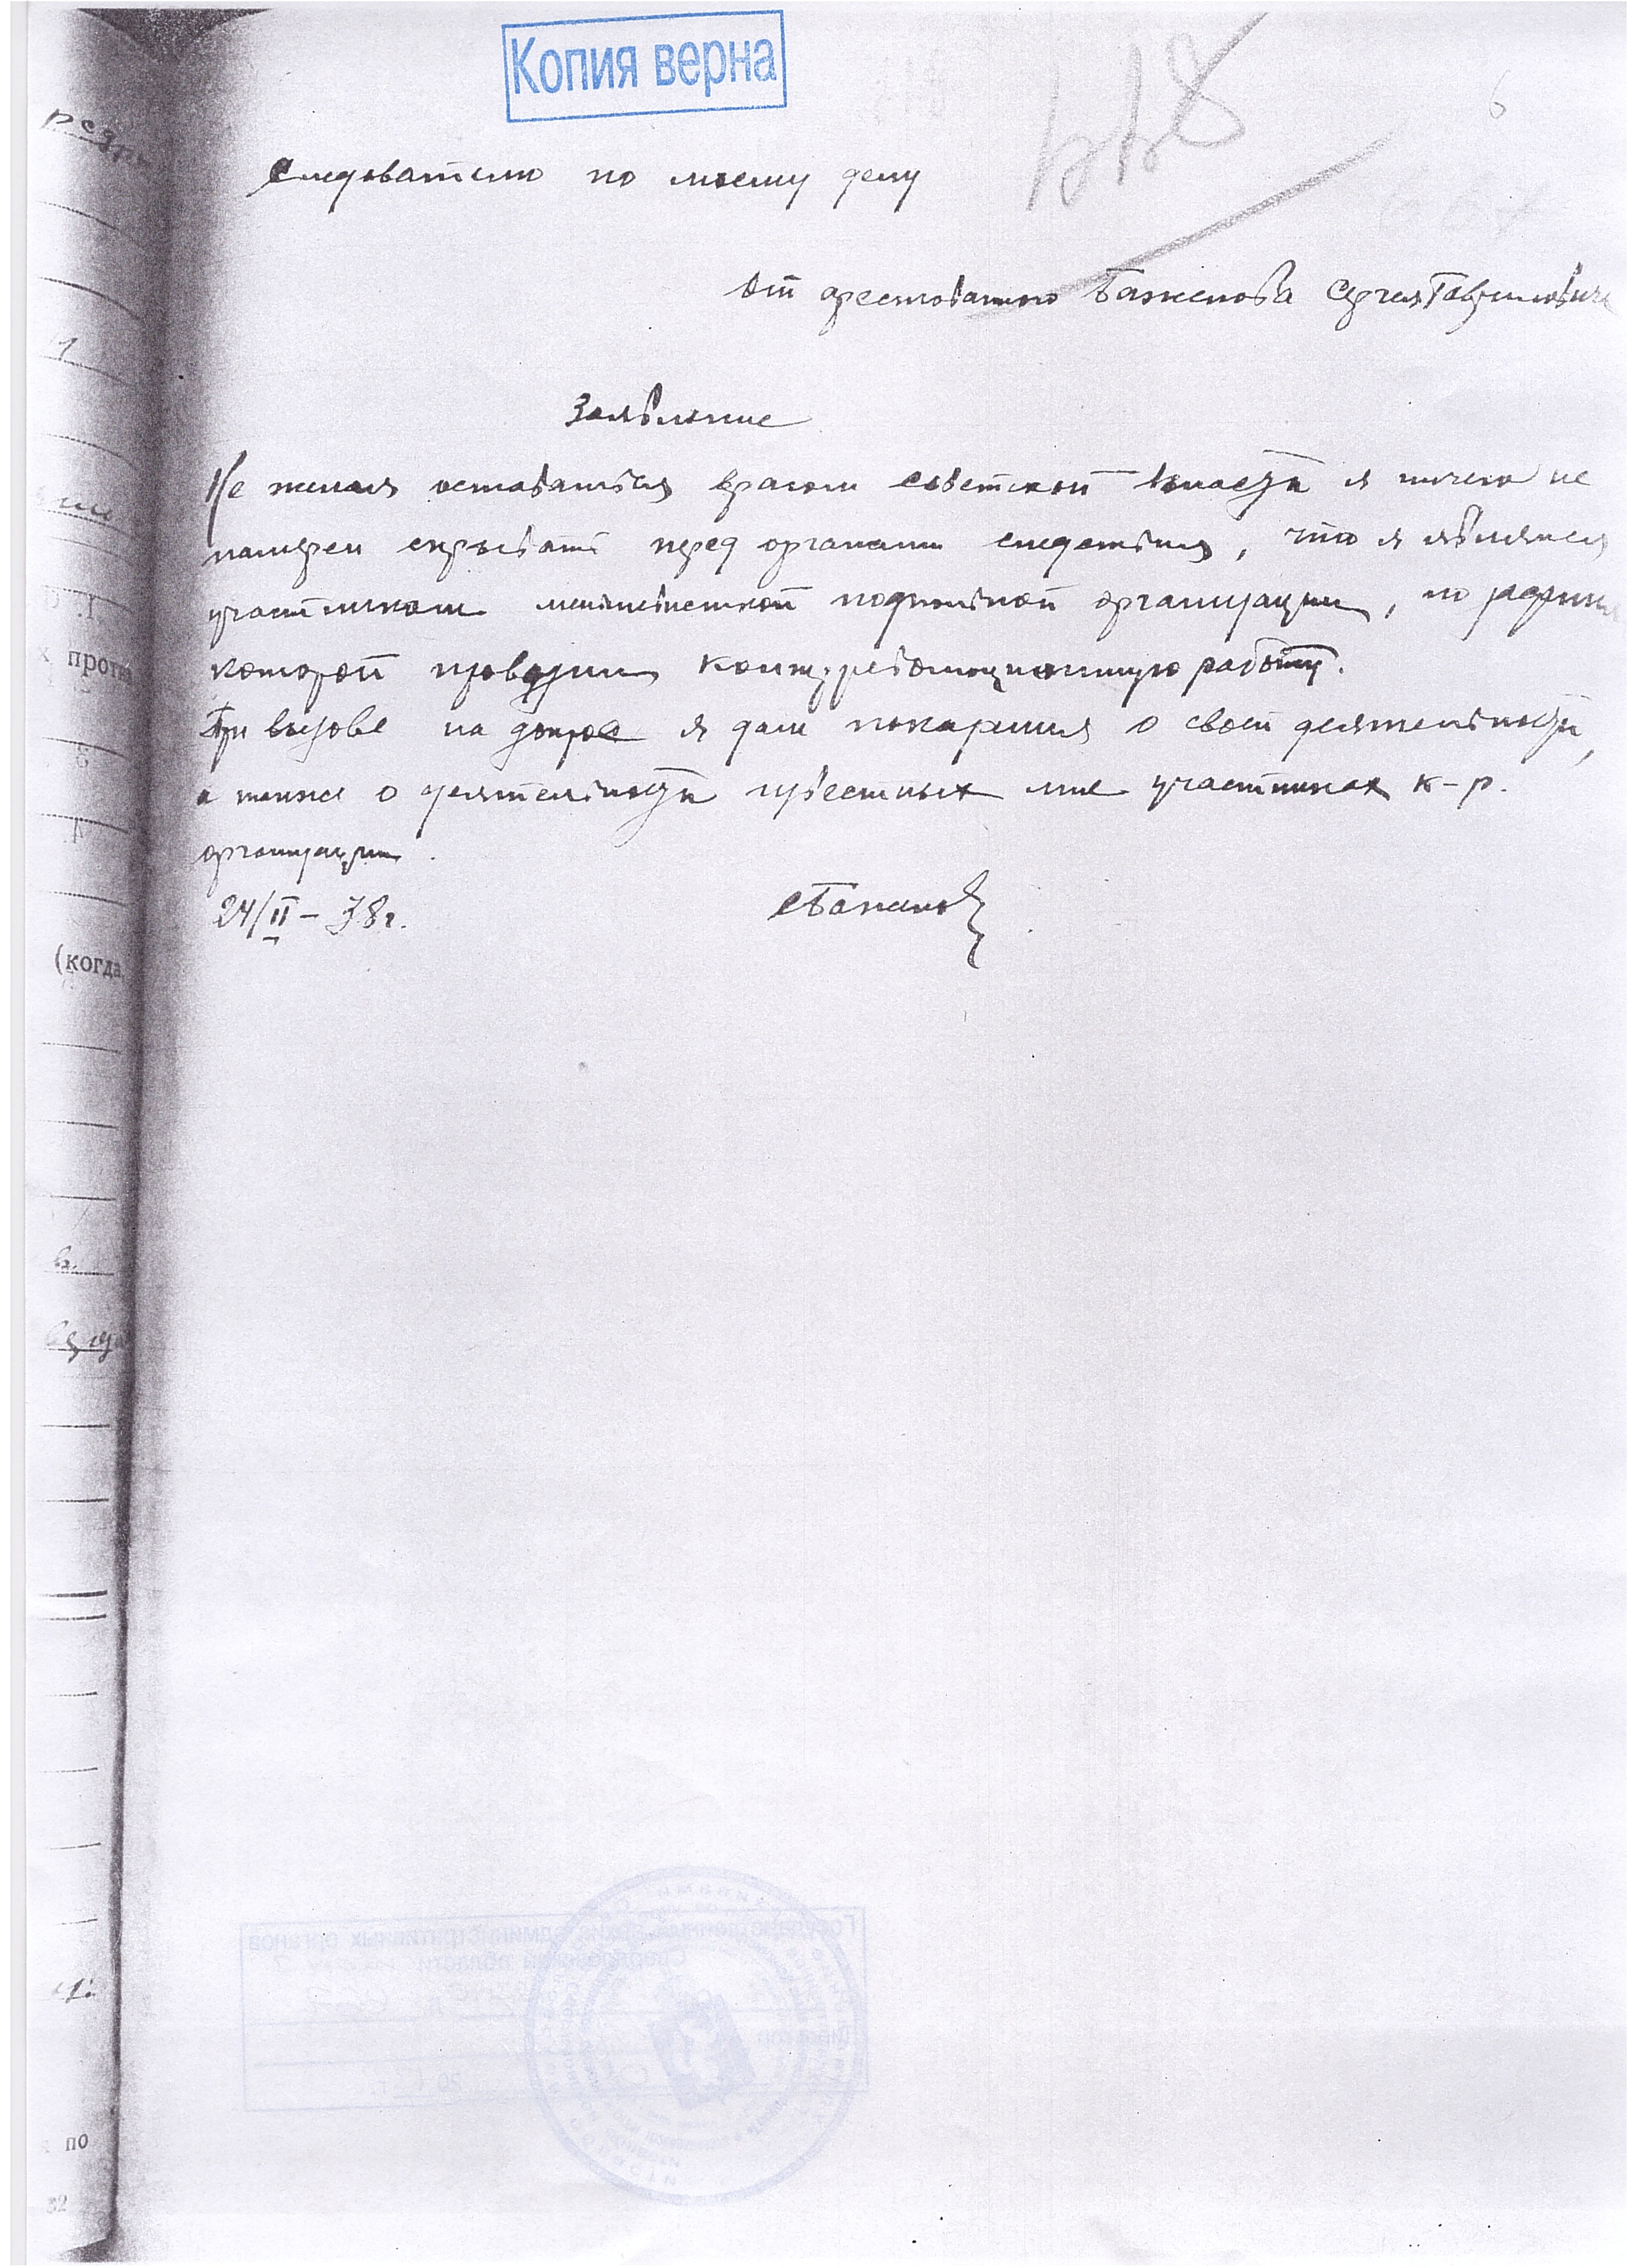 Копия верна
6
118
Следователю по моему делу
от арестованного Баженова Сергея Гавриловича
Заявление
Не желая оставаться врагом советской власти я ничего не
намерен скрывать перед органами следствия, что я являлся
участником меньшевистской подпольной организации, по заданию
которой проводил контрреволюционную работу.
При вызове на допрос я дам показания о своей деятельности,
а также о деятельности известных мне участниках к-р.
организации.
24/II – 38 г.
СБаженов
х против
(когда
по
32
Государственный архив административных органов
Свердловской области
20 г.